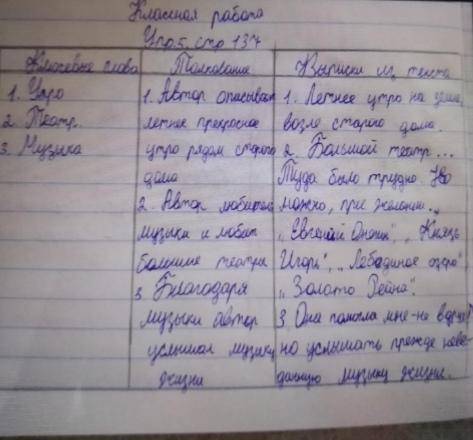 Классная работа
Упр 5. стр 137
Ключевые слова
1. Утро
2. Театр.
3. Музыка
Толкование
1. Автор описывает
летнее прекрасное
утро рядом старого
дома
2. Автор любитель
музыки и любит
большие театры
3 Благодаря
музыки автор
услышал музыку
жизни
Выписки из текста
1. Летнее утро на даче,
возле старого дома.
2. Большой театр...
Туда было трудно. Но
можно, при желании...
„Евгений Онегин", „Князь
Игорь", „Лебединое озеро",
„Золото Рейна".
3 Она помогла мне-не вдруг!
но услышать прежде неве-
данную музыку жизни.